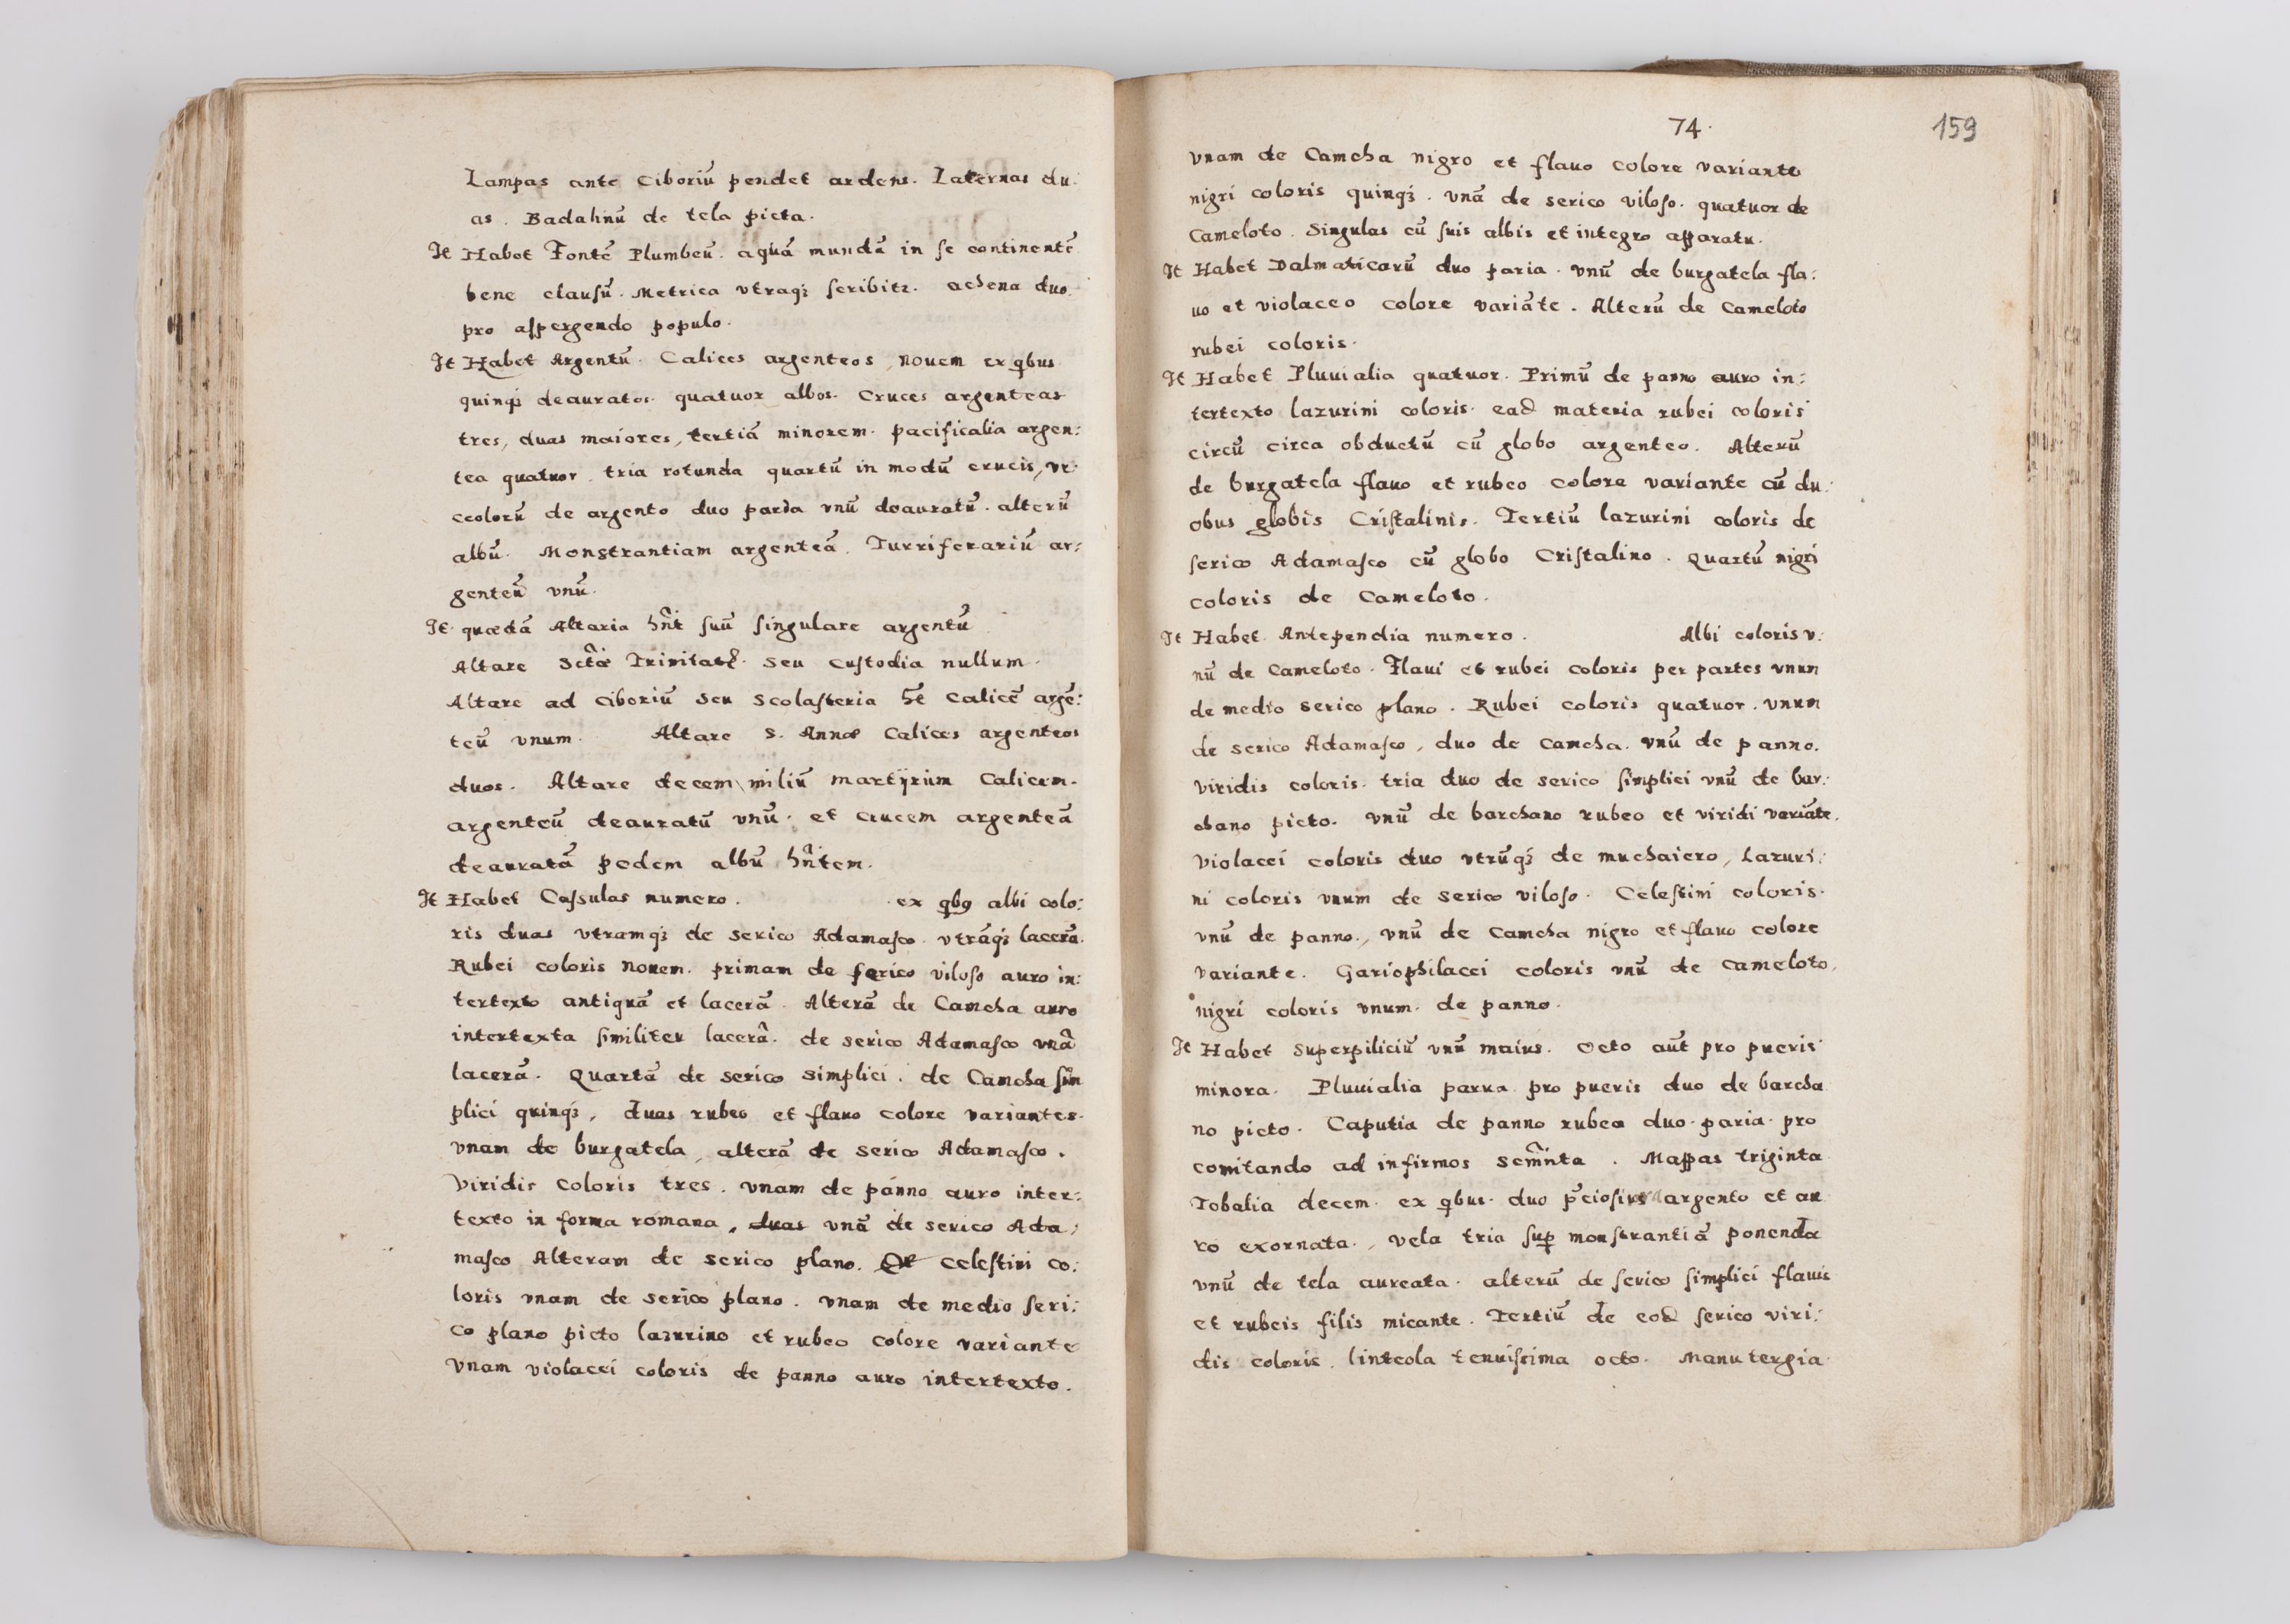 Lampas ante Ciboriū pendet ardens. Laternas du:
as. Badahnū de tela picta.
It Habet Fontē Plumbeū. aquā mundā in se continentē
bene clausū. Metrica vtraqꝫ scribitr. achena duo
pro aspergendo populo.
It Habet Argentū. Calices argenteos, nouem ex qbus
quinqꝫ deauratos. quatuor albos. Cruces argenteas
tres, duas maiores, tertiā minorem. pacificalia argen:
tea quatuor. tria rotunda quartū in modū crucis, vr:
ceolorū de argento duo paria vnū deauratū. alterū
albū. Monstrantiam argenteā. Turriferariū ar:
genteū vnū.
It quædā Altaria hñt suū singulare argentū
Altare Sctæ Trinitatꝭ. seu custodia nullum.
Altare ad Ciboriū seu Scolasteria ht Calicē argē:
teū vnum. Altare S. Annæ Calices argenteos
duos. Altare decem miliū martÿrum Calicem.
argenteū deauratū vnū. et crucem argenteā
deauratā pedem albū hñtem.
It Habet Cassulas numero. ex qbꝯ albi colo:
ris duas vtramqꝫ de serico Adamasco. vtrāqꝫ lacerā.
Rubei coloris nouem. primam de serico viloso auro in:
tertexto antiquā et lacerā. Alterā de Camcha auro
intertexta similiter lacerā. de serico Adamasco vnā
lacerā. Quartā de serico simplici. de Camcha sim
plici quinqꝫ, duas rubeo et flauo colore variantes.
vnam de burgatela, alterā de serico Adamasco.
Viridis coloris tres. vnam de panno auro inter:
texto in forma romana, duas vnā de serico Ada:
masco Alteram de serico plano. Celestini co:
loris vnam de serico plano. vnam de medio seri:
co plano picto lazurino et rubeo colore variante
Vnam violacei coloris de panno auro intertexto.
74.
159
vnam de Camcha nigro et flauo colore variante
nigri coloris quinqꝫ. vnā de serico viloso. quatuor de
Cameloto. Singulas cū suis albis et integro apparatu.
It Habet Dalmaticarū duo paria. vnū de burgatela fla:
uo et violaceo colore variāte. Alterū de Cameloto
rubei coloris.
It Habet Pluuialia quatuor. Primū de panno auro in:
tertexto lazurini coloris. ead materia rubei coloris
circū circa obductū cū globo argenteo. Alterū
de burgatela flauo et rubeo colore variante cū du:
obus globis Cristalinis. Tertiū lazurini coloris de
serico Adamasco cū globo Cristalino. Quartū nigri
coloris de Cameloto.
It Habet Antependia numero. Albi coloris v:
nū de Cameloto. Flaui et rubei coloris per partes vnum
de medio serico plano. Rubei coloris quatuor. vnum
de serico Adamasco, duo de Camcha. vnū de panno.
viridis coloris. tria duo de serico simplici vnū de bar:
chano picto. vnū de barchano rubeo et viridi variāte.
Violacei coloris duo vtrūqꝫ de muchaiero, Lazuri:
ni coloris vnum de serico viloso. Celestini coloris.
vnū de panno, vnū de Camcha nigro et flauo colore
variante. Gariophilacei coloris vnū de Cameloto,
nigri coloris vnum de panno.
It Habet Superpiliciū vnū maius. Octo aūt pro pueris
minora. Pluuialia parua pro pueris duo de barcha
no picto. Caputia de panno rubea duo paria pro
comitando ad infirmos scm̃nta. Mappas triginta
Tobalia decem. ex qbus duo pciosius argento et au
ro exornata, vela tria sup monstrantiā ponenda
vnū de tela aureata. alterū de serico simplici flauis
et rubeis filis micante. Tertiū de eod serico viri:
dis coloris. linteola tenuissima octo. Manutergia